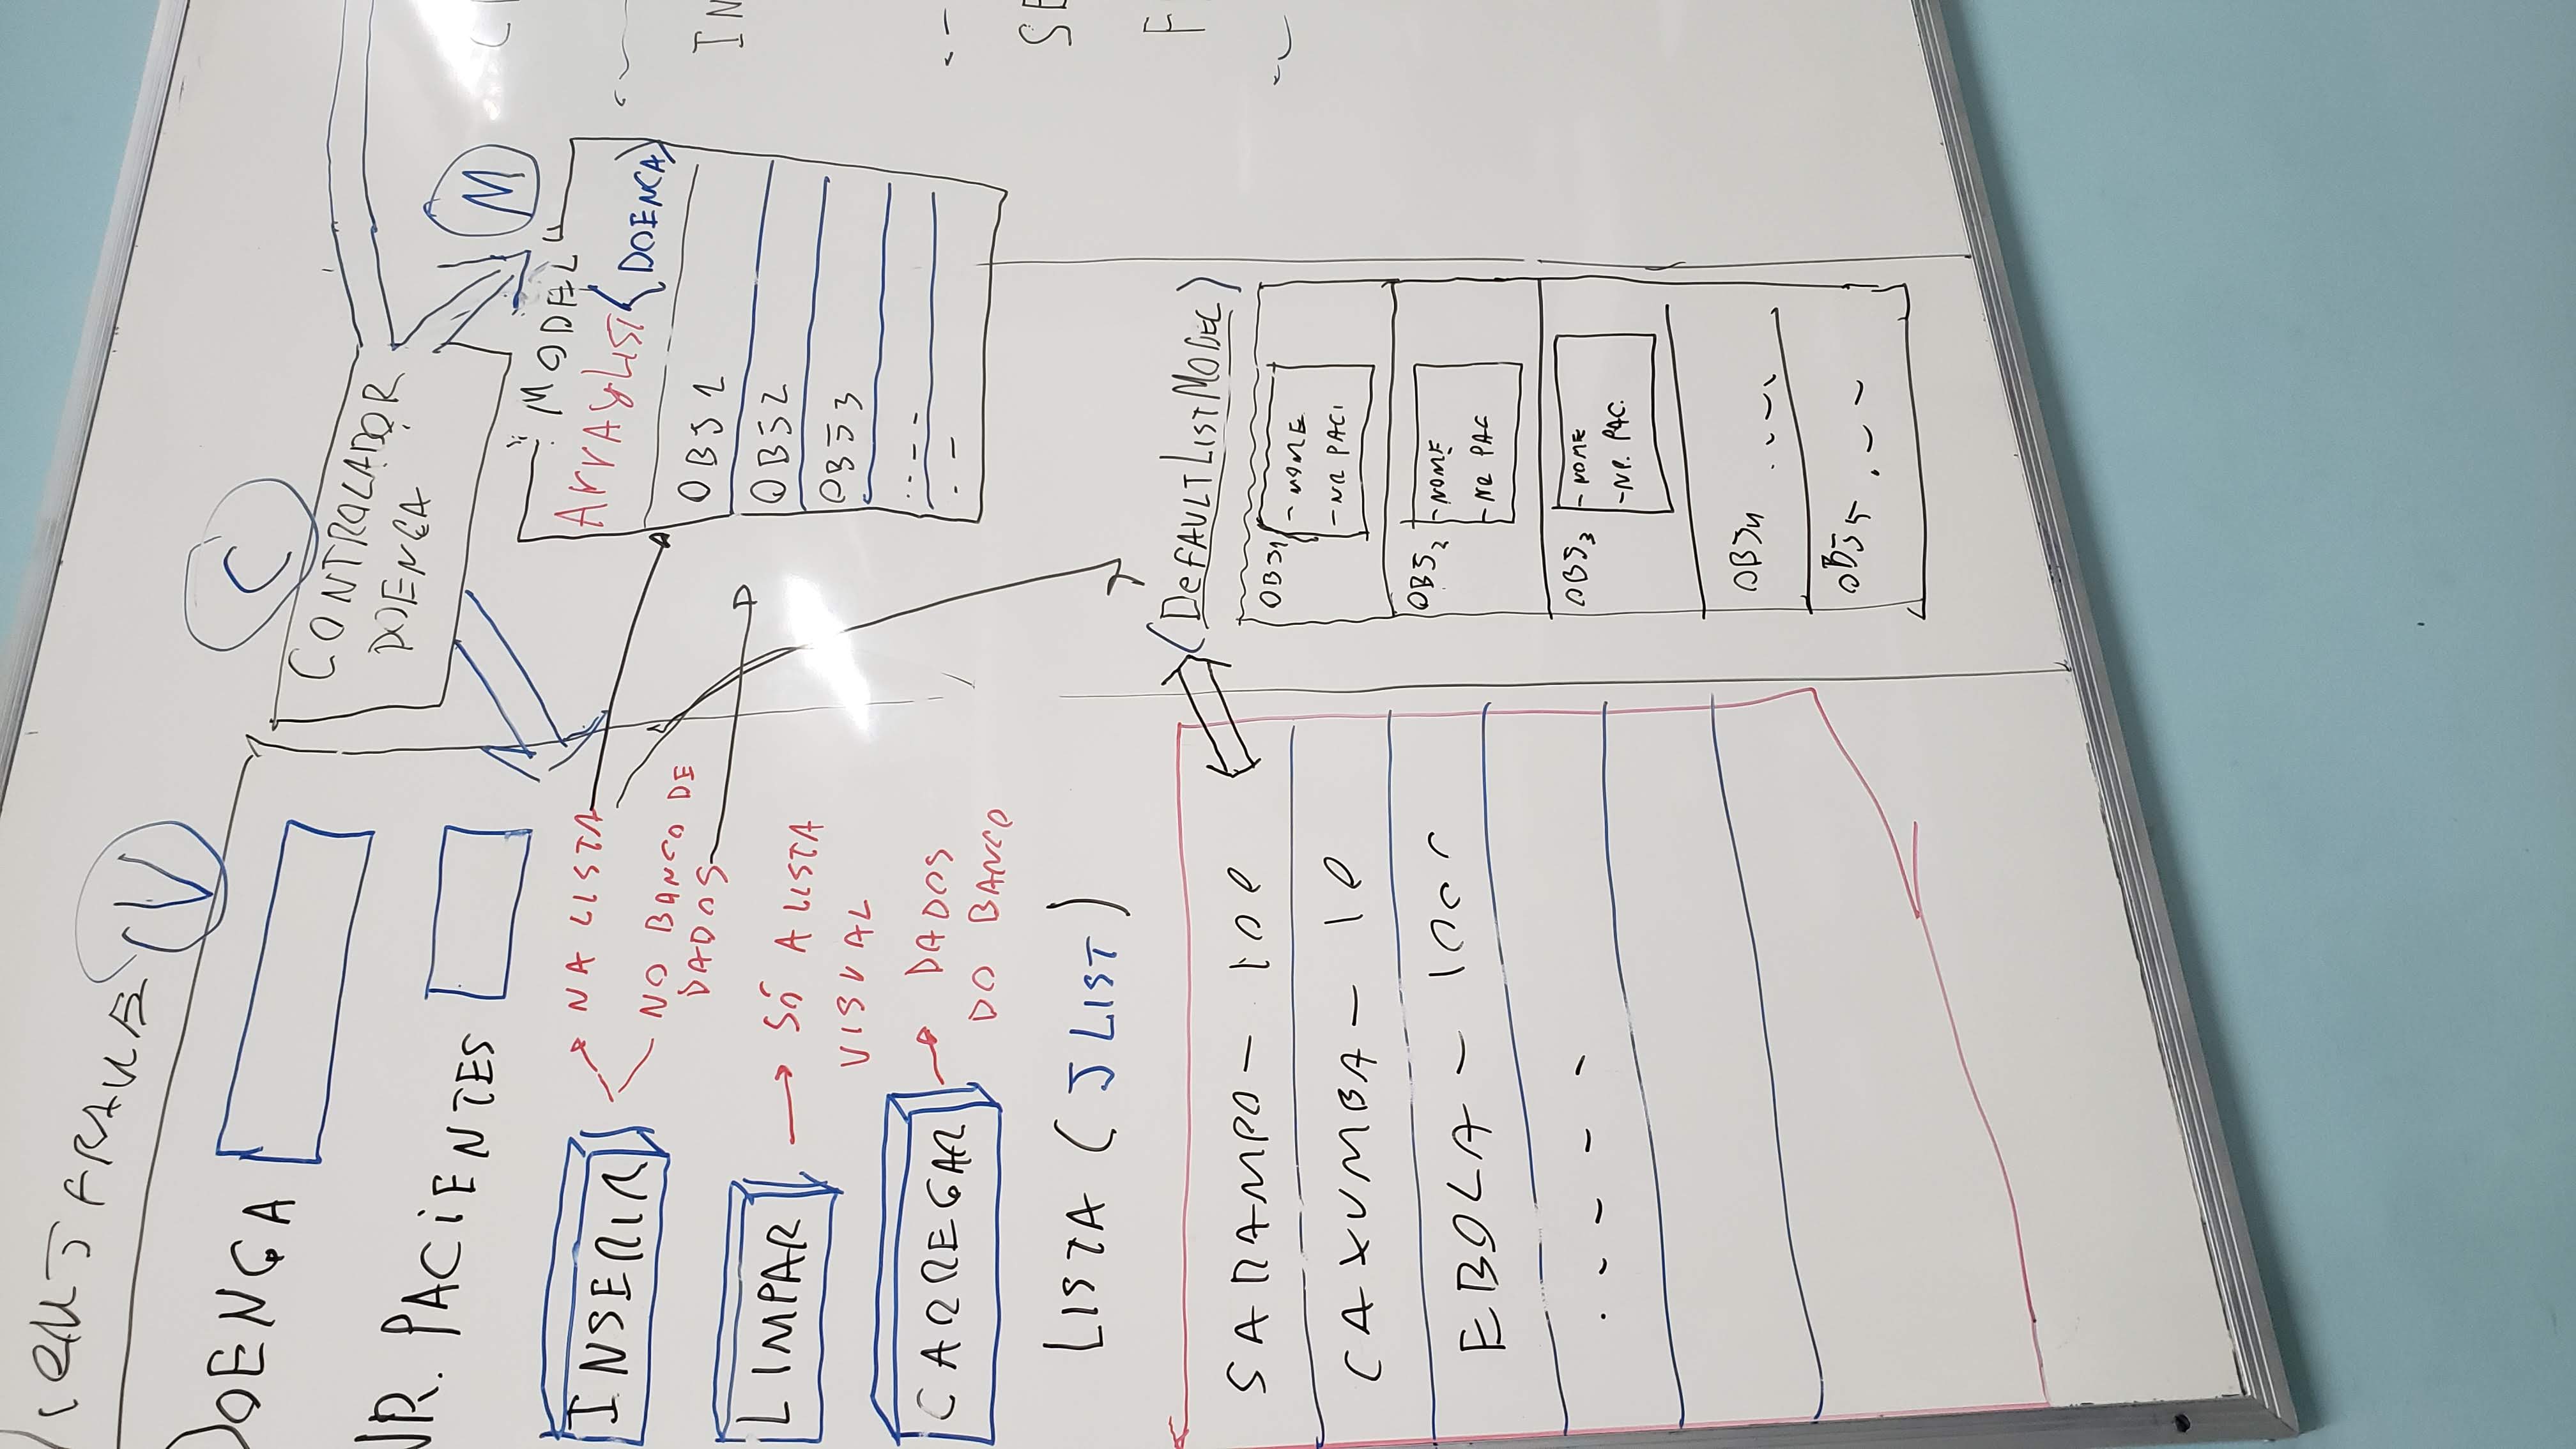 V
DOENÇA
NR. PACIENTES
INSERIR
NA LISTA
NO BANCO DE
DADOS
LIMPAR
SÓ A LISTA
VISUAL
CARREGAR
DADOS
DO BANCO
LISTA (JLIST)
SARAMPO - 100
CAXUMBA - 10
EBOLA - 1000
C
CONTROLADOR
DOENÇA
M
"MODEL"
ArrayList<DOENCA>
OBJ1
OBJ2
OBJ3
(DeFAULTLISTMODEL)
OBJ1
- NOME
- NR PACI
OBJ2
- NOME
- NR PAC
OBJ3
- NOME
- NR. PAC.
OBJ4
OBJ5
IN
SE
F